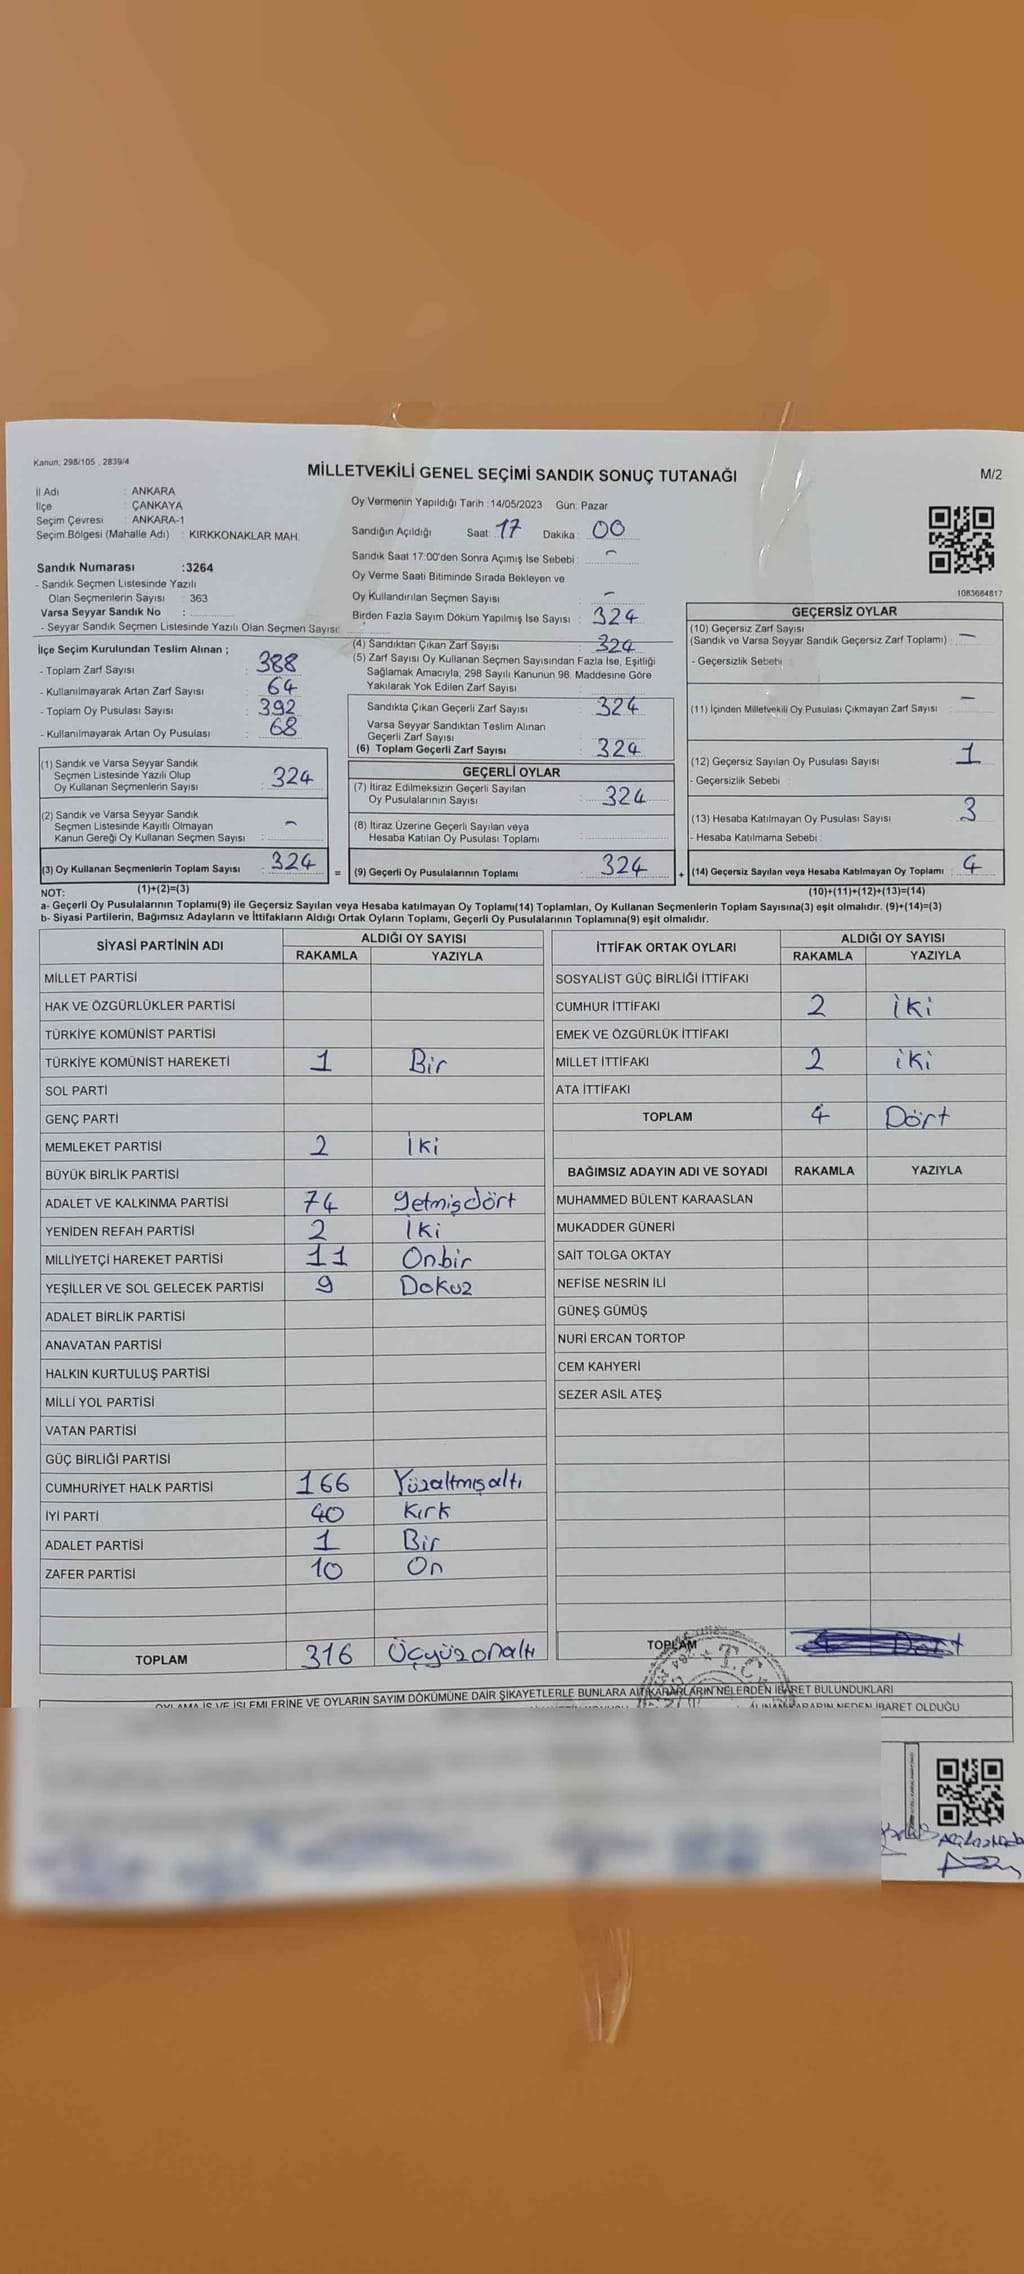 Kanun, 298/105 , 2839/4
MİLLETVEKİLİ GENEL SEÇİMİ SANDIK SONUÇ TUTANAĞI
M/2
İl Adı : ANKARA
İlçe : ÇANKAYA
Seçim Çevresi : ANKARA-1
Seçim Bölgesi (Mahalle Adı) : KIRKKONAKLAR MAH.
Oy Vermenin Yapıldığı Tarih :14/05/2023 Gün: Pazar
Sandığın Açıldığı Saat: 17 Dakika : 00
Sandık Saat 17:00'den Sonra Açımış İse Sebebi : -
Oy Verme Saati Bitiminde Sırada Bekleyen ve
Oy Kullandırılan Seçmen Sayısı : -
Birden Fazla Sayım Döküm Yapılmış İse Sayısı : 324
1083684817
Sandık Numarası :3264
- Sandık Seçmen Listesinde Yazılı
Olan Seçmenlerin Sayısı : 363
Varsa Seyyar Sandık No :
- Seyyar Sandık Seçmen Listesinde Yazılı Olan Seçmen Sayısı:
İlçe Seçim Kurulundan Teslim Alınan ;
- Toplam Zarf Sayısı : 388
- Kullanılmayarak Artan Zarf Sayısı : 64
- Toplam Oy Pusulası Sayısı : 392
- Kullanılmayarak Artan Oy Pusulası : 68
(1) Sandık ve Varsa Seyyar Sandık
Seçmen Listesinde Yazılı Olup
Oy Kullanan Seçmenlerin Sayısı : 324
(2) Sandık ve Varsa Seyyar Sandık
Seçmen Listesinde Kayıtlı Olmayan
Kanun Gereği Oy Kullanan Seçmen Sayısı : -
(3) Oy Kullanan Seçmenlerin Toplam Sayısı : 324 =
(4) Sandıktan Çıkan Zarf Sayısı : 324
(5) Zarf Sayısı Oy Kullanan Seçmen Sayısından Fazla İse, Eşitliği
Sağlamak Amacıyla, 298 Sayılı Kanunun 98. Maddesine Göre
Yakılarak Yok Edilen Zarf Sayısı :
Sandıkta Çıkan Geçerli Zarf Sayısı : 324
Varsa Seyyar Sandıktan Teslim Alınan
Geçerli Zarf Sayısı :
(6) Toplam Geçerli Zarf Sayısı : 324
GEÇERLİ OYLAR
(7) İtiraz Edilmeksizin Geçerli Sayılan
Oy Pusulalarının Sayısı : 324
(8) İtiraz Üzerine Geçerli Sayılan veya
Hesaba Katılan Oy Pusulası Toplamı :
(9) Geçerli Oy Pusulalarının Toplamı : 324 +
GEÇERSİZ OYLAR
(10) Geçersiz Zarf Sayısı
(Sandık ve Varsa Seyyar Sandık Geçersiz Zarf Toplamı) : -
- Geçersizlik Sebebi :
(11) İçinden Milletvekili Oy Pusulası Çıkmayan Zarf Sayısı : -
(12) Geçersiz Sayılan Oy Pusulası Sayısı : 1
- Geçersizlik Sebebi :
(13) Hesaba Katılmayan Oy Pusulası Sayısı : 3
- Hesaba Katılmama Sebebi :
(14) Geçersiz Sayılan veya Hesaba Katılmayan Oy Toplamı : 4
NOT: (1)+(2)=(3)
(10)+(11)+(12)+(13)=(14)
a- Geçerli Oy Pusulalarının Toplamı(9) ile Geçersiz Sayılan veya Hesaba katılmayan Oy Toplamı(14) Toplamları, Oy Kullanan Seçmenlerin Toplam Sayısına(3) eşit olmalıdır. (9)+(14)=(3)
b- Siyasi Partilerin, Bağımsız Adayların ve İttifakların Aldığı Ortak Oyların Toplamı, Geçerli Oy Pusulalarının Toplamına(9) eşit olmalıdır.
SİYASİ PARTİNİN ADI ALDIĞI OY SAYISI
RAKAMLA YAZIYLA
MİLLET PARTİSİ
HAK VE ÖZGÜRLÜKLER PARTİSİ
TÜRKİYE KOMÜNİST PARTİSİ
TÜRKİYE KOMÜNİST HAREKETİ 1 Bir
SOL PARTİ
GENÇ PARTİ
MEMLEKET PARTİSİ 2 İki
BÜYÜK BİRLİK PARTİSİ
ADALET VE KALKINMA PARTİSİ 74 Yetmişdört
YENİDEN REFAH PARTİSİ 2 İki
MİLLİYETÇİ HAREKET PARTİSİ 11 Onbir
YEŞİLLER VE SOL GELECEK PARTİSİ 9 Dokuz
ADALET BİRLİK PARTİSİ
ANAVATAN PARTİSİ
HALKIN KURTULUŞ PARTİSİ
MİLLİ YOL PARTİSİ
VATAN PARTİSİ
GÜÇ BİRLİĞİ PARTİSİ
CUMHURİYET HALK PARTİSİ 166 Yüzaltmışaltı
İYİ PARTİ 40 Kırk
ADALET PARTİSİ 1 Bir
ZAFER PARTİSİ 10 On
TOPLAM 316 Üçyüzonaltı
İTTİFAK ORTAK OYLARI ALDIĞI OY SAYISI
RAKAMLA YAZIYLA
SOSYALİST GÜÇ BİRLİĞİ İTTİFAKI
CUMHUR İTTİFAKI 2 İki
EMEK VE ÖZGÜRLÜK İTTİFAKI
MİLLET İTTİFAKI 2 İki
ATA İTTİFAKI
TOPLAM 4 Dört
BAĞIMSIZ ADAYIN ADI VE SOYADI RAKAMLA YAZIYLA
MUHAMMED BÜLENT KARAASLAN
MUKADDER GÜNERİ
SAİT TOLGA OKTAY
NEFİSE NESRİN İLİ
GÜNEŞ GÜMÜŞ
NURİ ERCAN TORTOP
CEM KAHYERİ
SEZER ASİL ATEŞ
TOPLAM
T.C.
OYLAMA İŞ VE İŞLEMLERİNE VE OYLARIN SAYIM DÖKÜMÜNE DAİR ŞİKAYETLERLE BUNLARA AİT KARARLARIN NELERDEN İBARET BULUNDUKLARI
ALINAN KARARIN NEDEN İBARET OLDUĞU